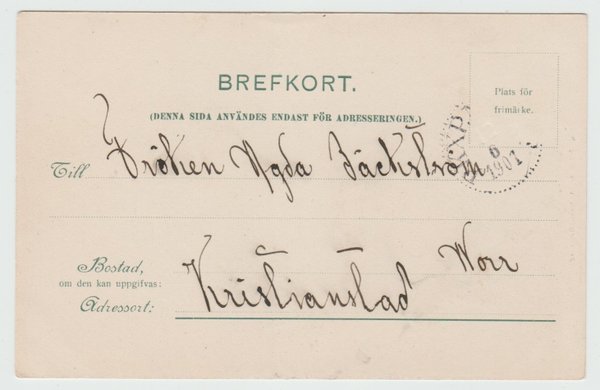 BREFKORT.
(DENNA SIDA ANVÄNDES ENDAST FÖR ADRESSERINGEN.)
Plats för
frimärke.
PKXP
6
1901
Till Fröken Agda Bäckström
Bostad, Norr
om den kan uppgifvas:
Adressort: Kristianstad